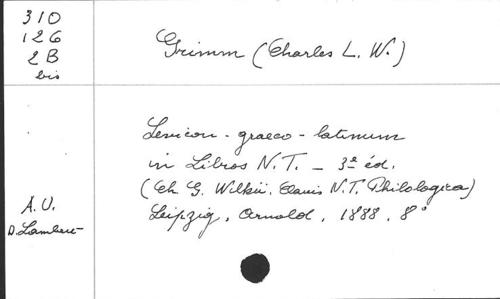 310
126
2B
bis
Grimm (Charles L. W.)
Lexicon - graeco - latinum
in Libros N.T. _ 3ª éd.
(Ch. G. Wilkii, Clavis N.T. Philologica)
Leipzig, Arnold, 1888, 8°
A.U.
D. Lambert